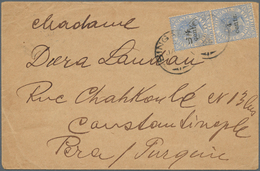 Madame
Dora Lauman
Rue Chahkoulé N 13 bis
Constantinople
Pera / Turquie